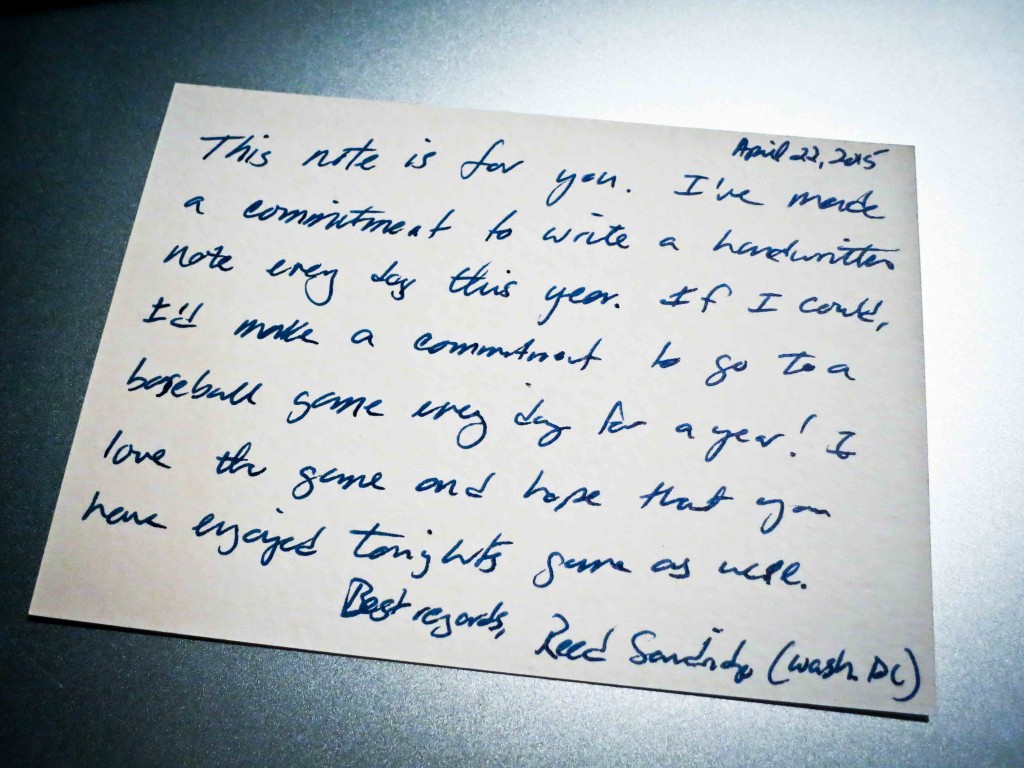 April 22, 2015
This note is for you. I've made
a commitment to write a handwritten
note every day this year. If I could,
I'd make a commitment to go to a
baseball game every day for a year! I
love the game and hope that you
have enjoyed tonights game as well.
Best regards, Reed Sandridge (Wash. DC)